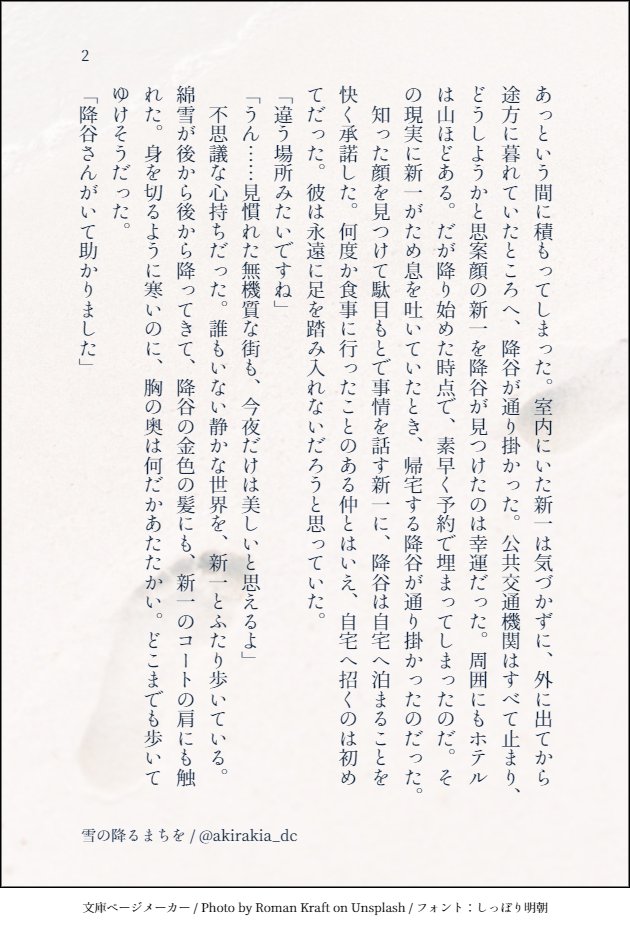 2
あっという間に積もってしまった。室内にいた新一は気づかずに、外に出てから
途方に暮れていたところへ、降谷が通り掛かった。公共交通機関はすべて止まり、
どうしようかと思案顔の新一を降谷が見つけたのは幸運だった。周囲にもホテル
は山ほどある。だが降り始めた時点で、素早く予約で埋まってしまったのだ。そ
の現実に新一がため息を吐いていたとき、帰宅する降谷が通り掛かったのだった。
　知った顔を見つけて駄目もとで事情を話す新一に、降谷は自宅へ泊まることを
快く承諾した。何度か食事に行ったことのある仲とはいえ、自宅へ招くのは初め
てだった。彼は永遠に足を踏み入れないだろうと思っていた。
「違う場所みたいですね」
「うん……見慣れた無機質な街も、今夜だけは美しいと思えるよ」
　不思議な心持ちだった。誰もいない静かな世界を、新一とふたり歩いている。
綿雪が後から後から降ってきて、降谷の金色の髪にも、新一のコートの肩にも触
れた。身を切るように寒いのに、胸の奥は何だかあたたかい。どこまでも歩いて
ゆけそうだった。
「降谷さんがいて助かりました」
雪の降るまちを / @akirakia_dc
文庫ページメーカー / Photo by Roman Kraft on Unsplash / フォント：しっぽり明朝